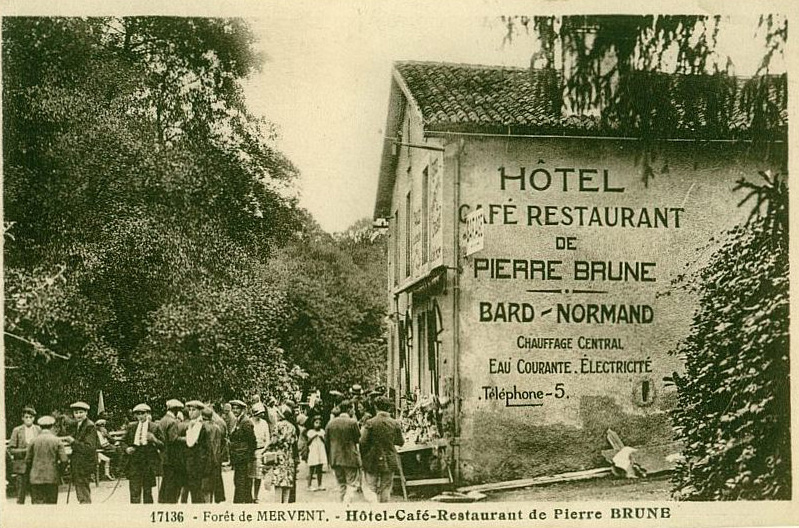 HÔTEL
CAFÉ RESTAURANT
DE
PIERRE BRUNE
BARD - NORMAND
CHAUFFAGE CENTRAL
EAU COURANTE. ÉLECTRICITÉ
.Téléphone-5.
17136 - Forêt de MERVENT. - Hôtel-Café-Restaurant de Pierre BRUNE